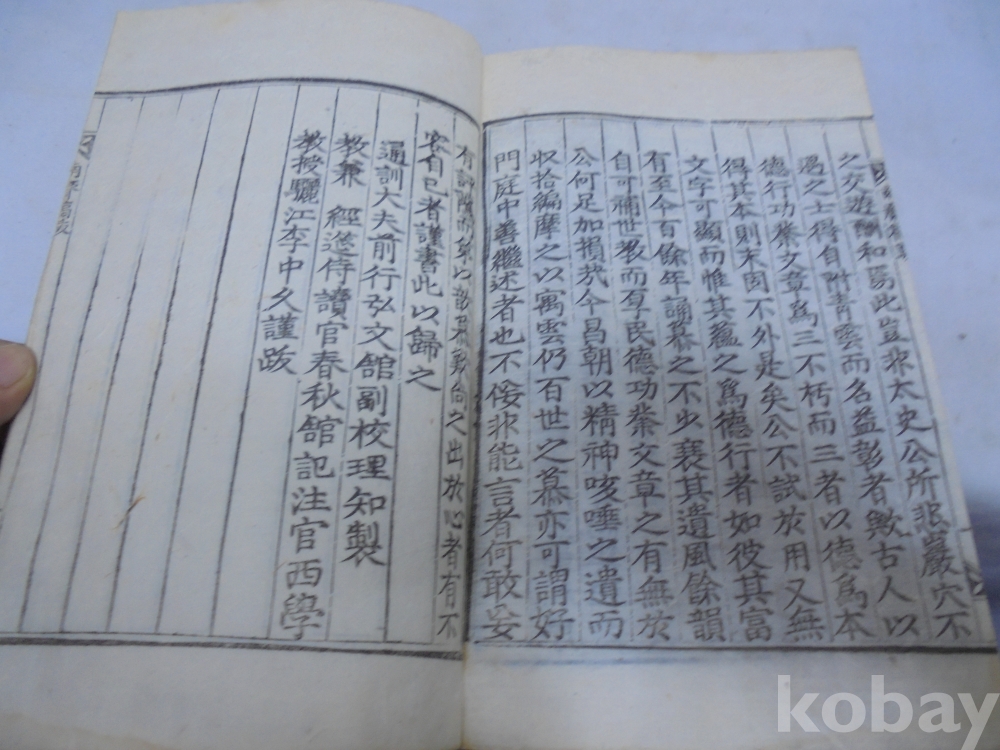 之交遊酬和焉此豈非太史公所悲巖穴不
遇之士得自附青雲而名益彰者歟古人以
德行功業文章爲三不朽而三者以德爲本
得其本則末固不外是矣公不試於用又無
文字可顯而惟其蘊之爲德行者如彼其富
有至今百餘年誦慕之不少衰其遺風餘韻
自可補世教而享民德功業文章之有無於
公何足加損哉今昌朝以精神咳唾之遺而
収拾編摩之以寓雲仍百世之慕亦可謂好
門庭中善繼述者也不佞非能言者何敢妄
有 之出於心者有不
容自已者謹書此以歸之
通訓大夫前行弘文館副校理知製
敎兼 經筵侍讀官春秋館記注官西學
敎授驪江李中久謹跋
kobay